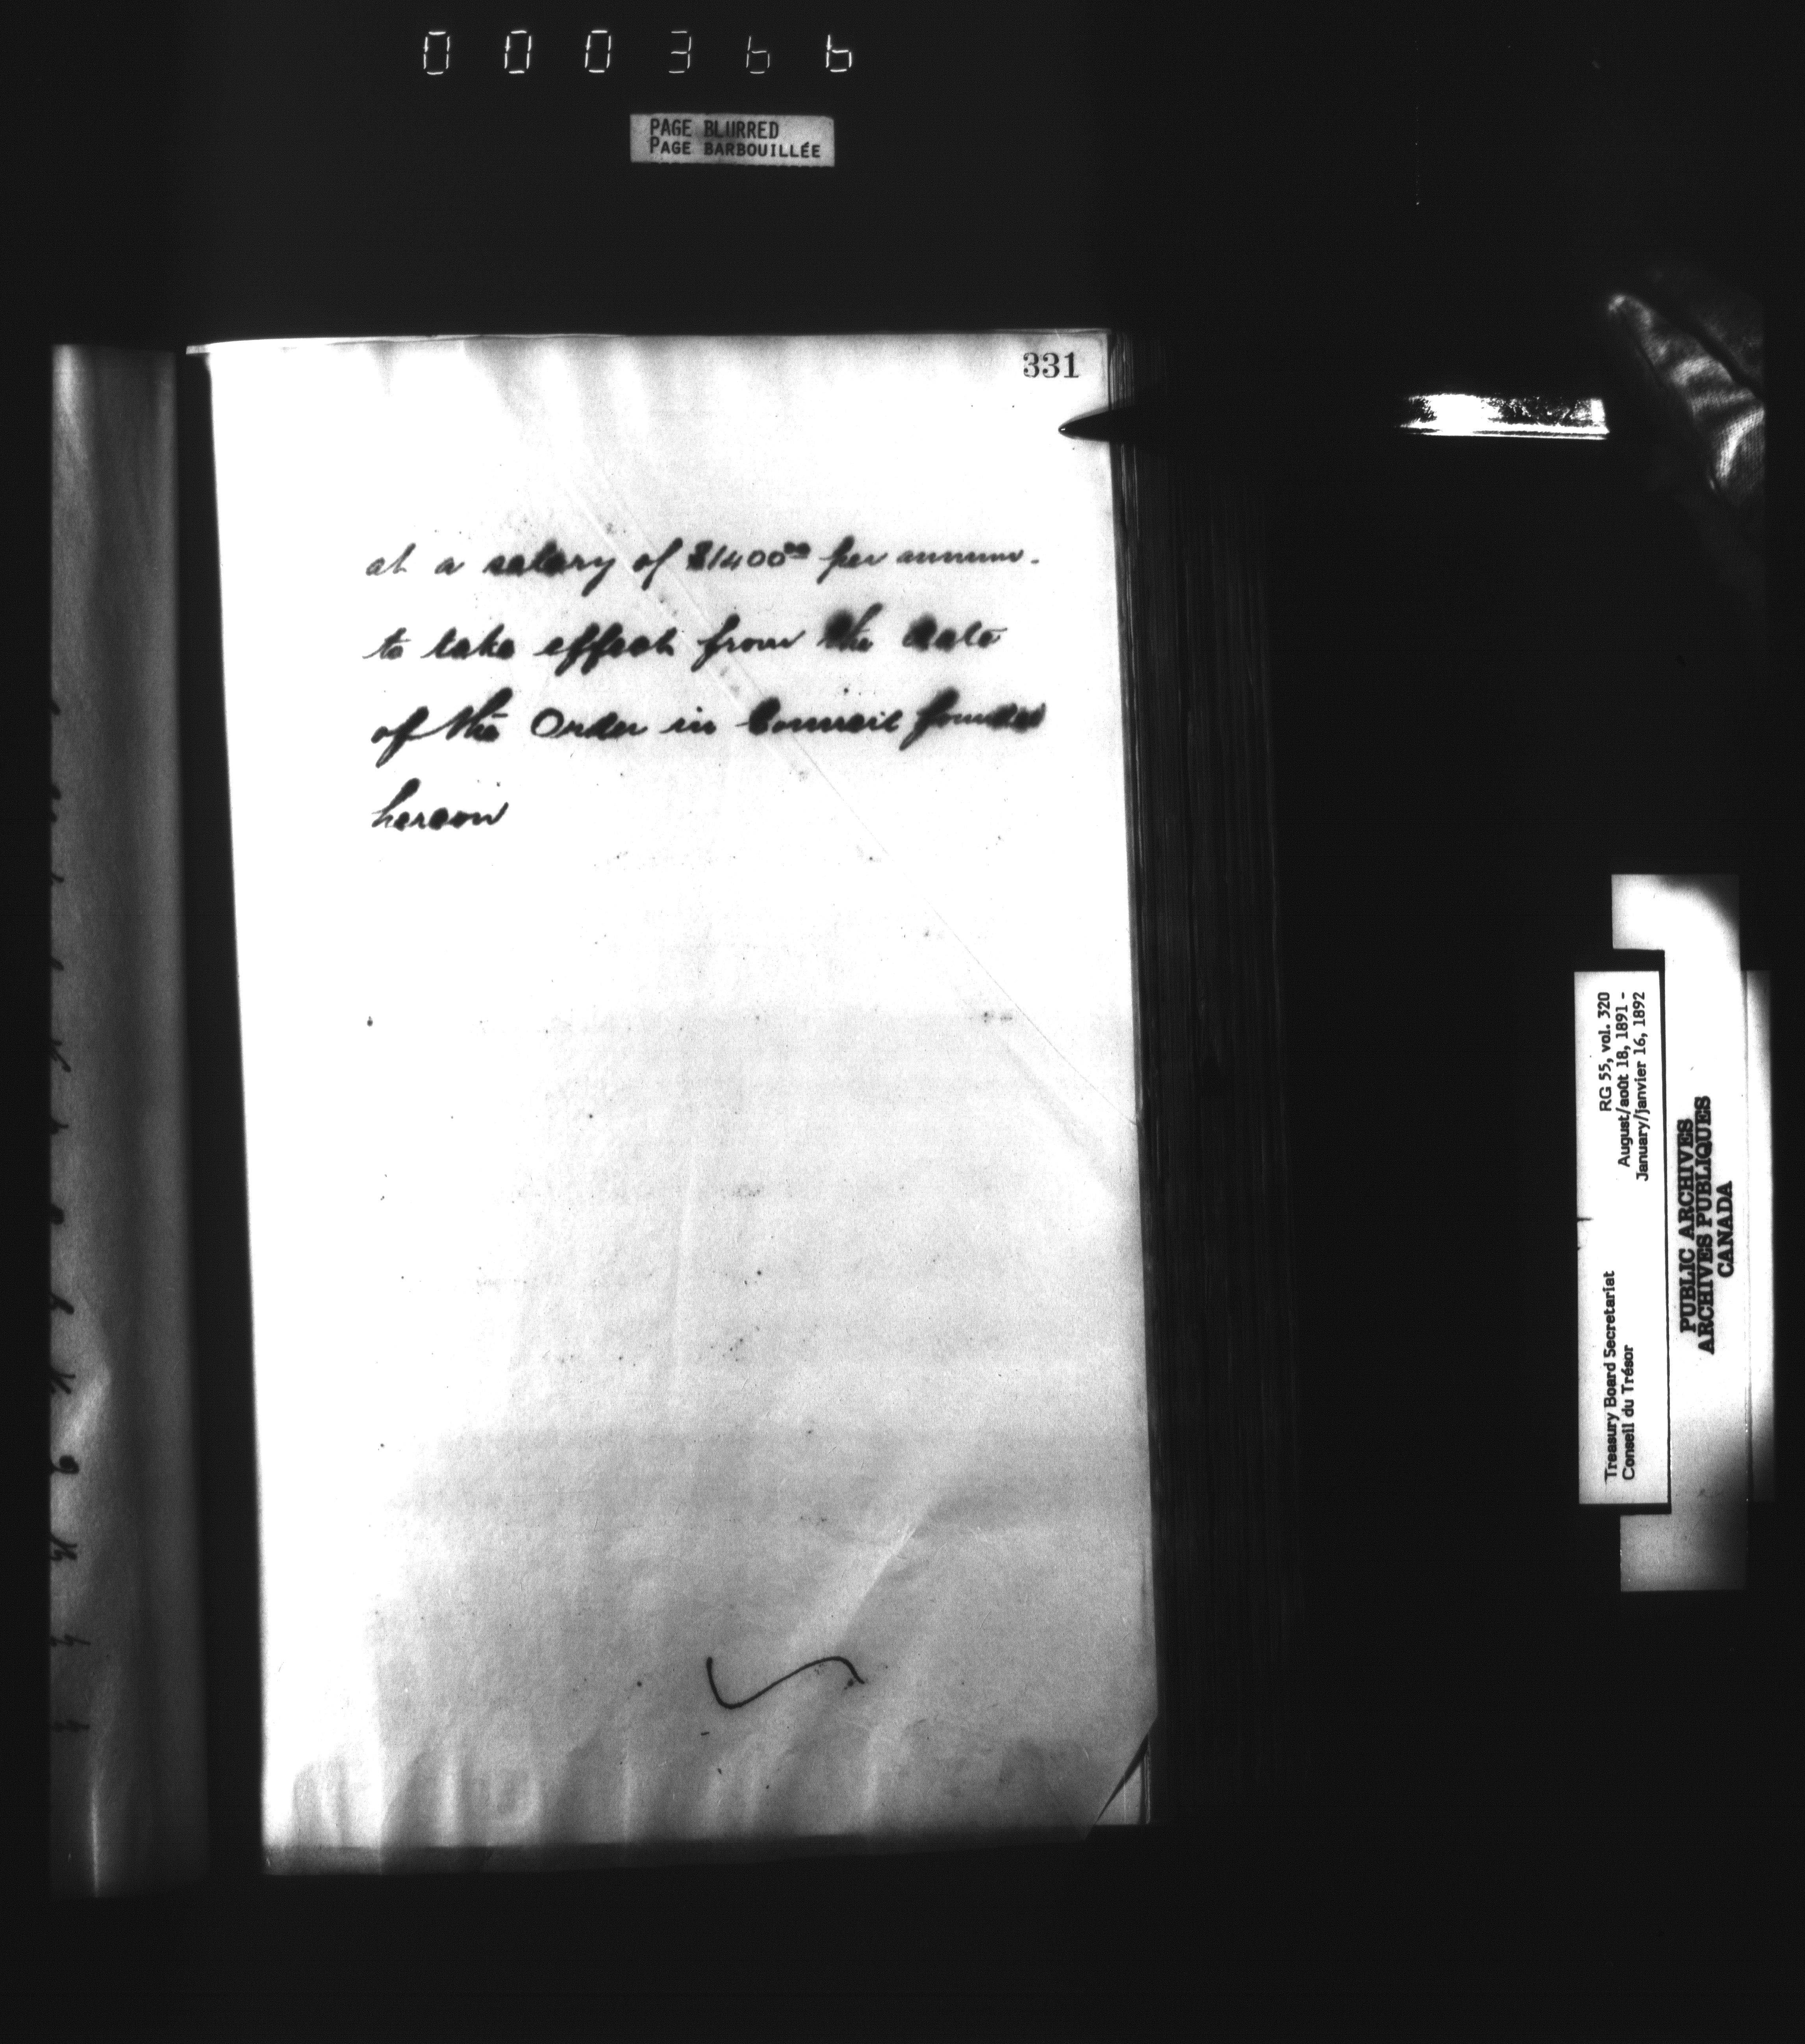 000366
PAGE BLURRED
PAGE BARBOUILLÉE
331
at a salary of $1400⁰⁰ per annum.
to take effect from the date
of the Order in Council founded
hereon
RG 55, vol. 320
August/août 18, 1891 -
January/janvier 16, 1892
Treasury Board Secretariat
Conseil du Trésor
PUBLIC ARCHIVES
ARCHIVES PUBLIQUES
CANADA